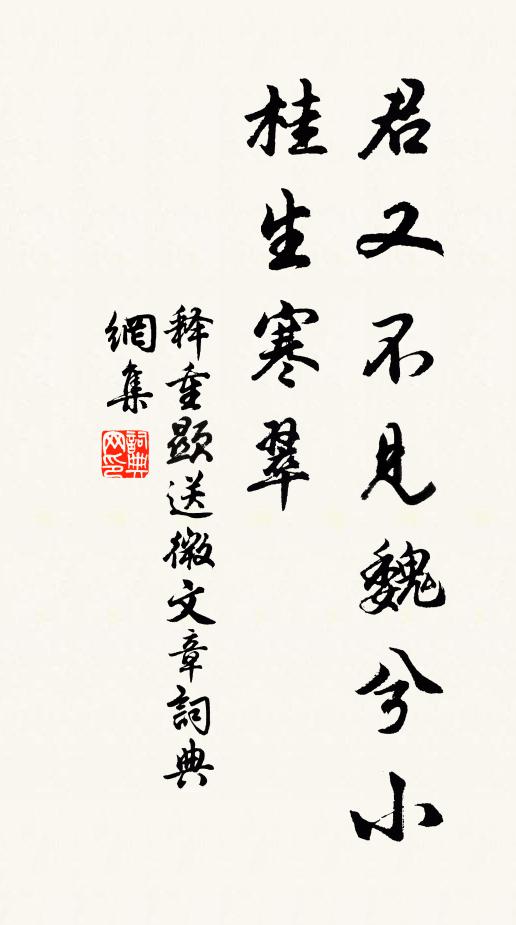 君又不见魏兮小
桂生寒翠
释重顯送微文章詞典
網集
詞典网印